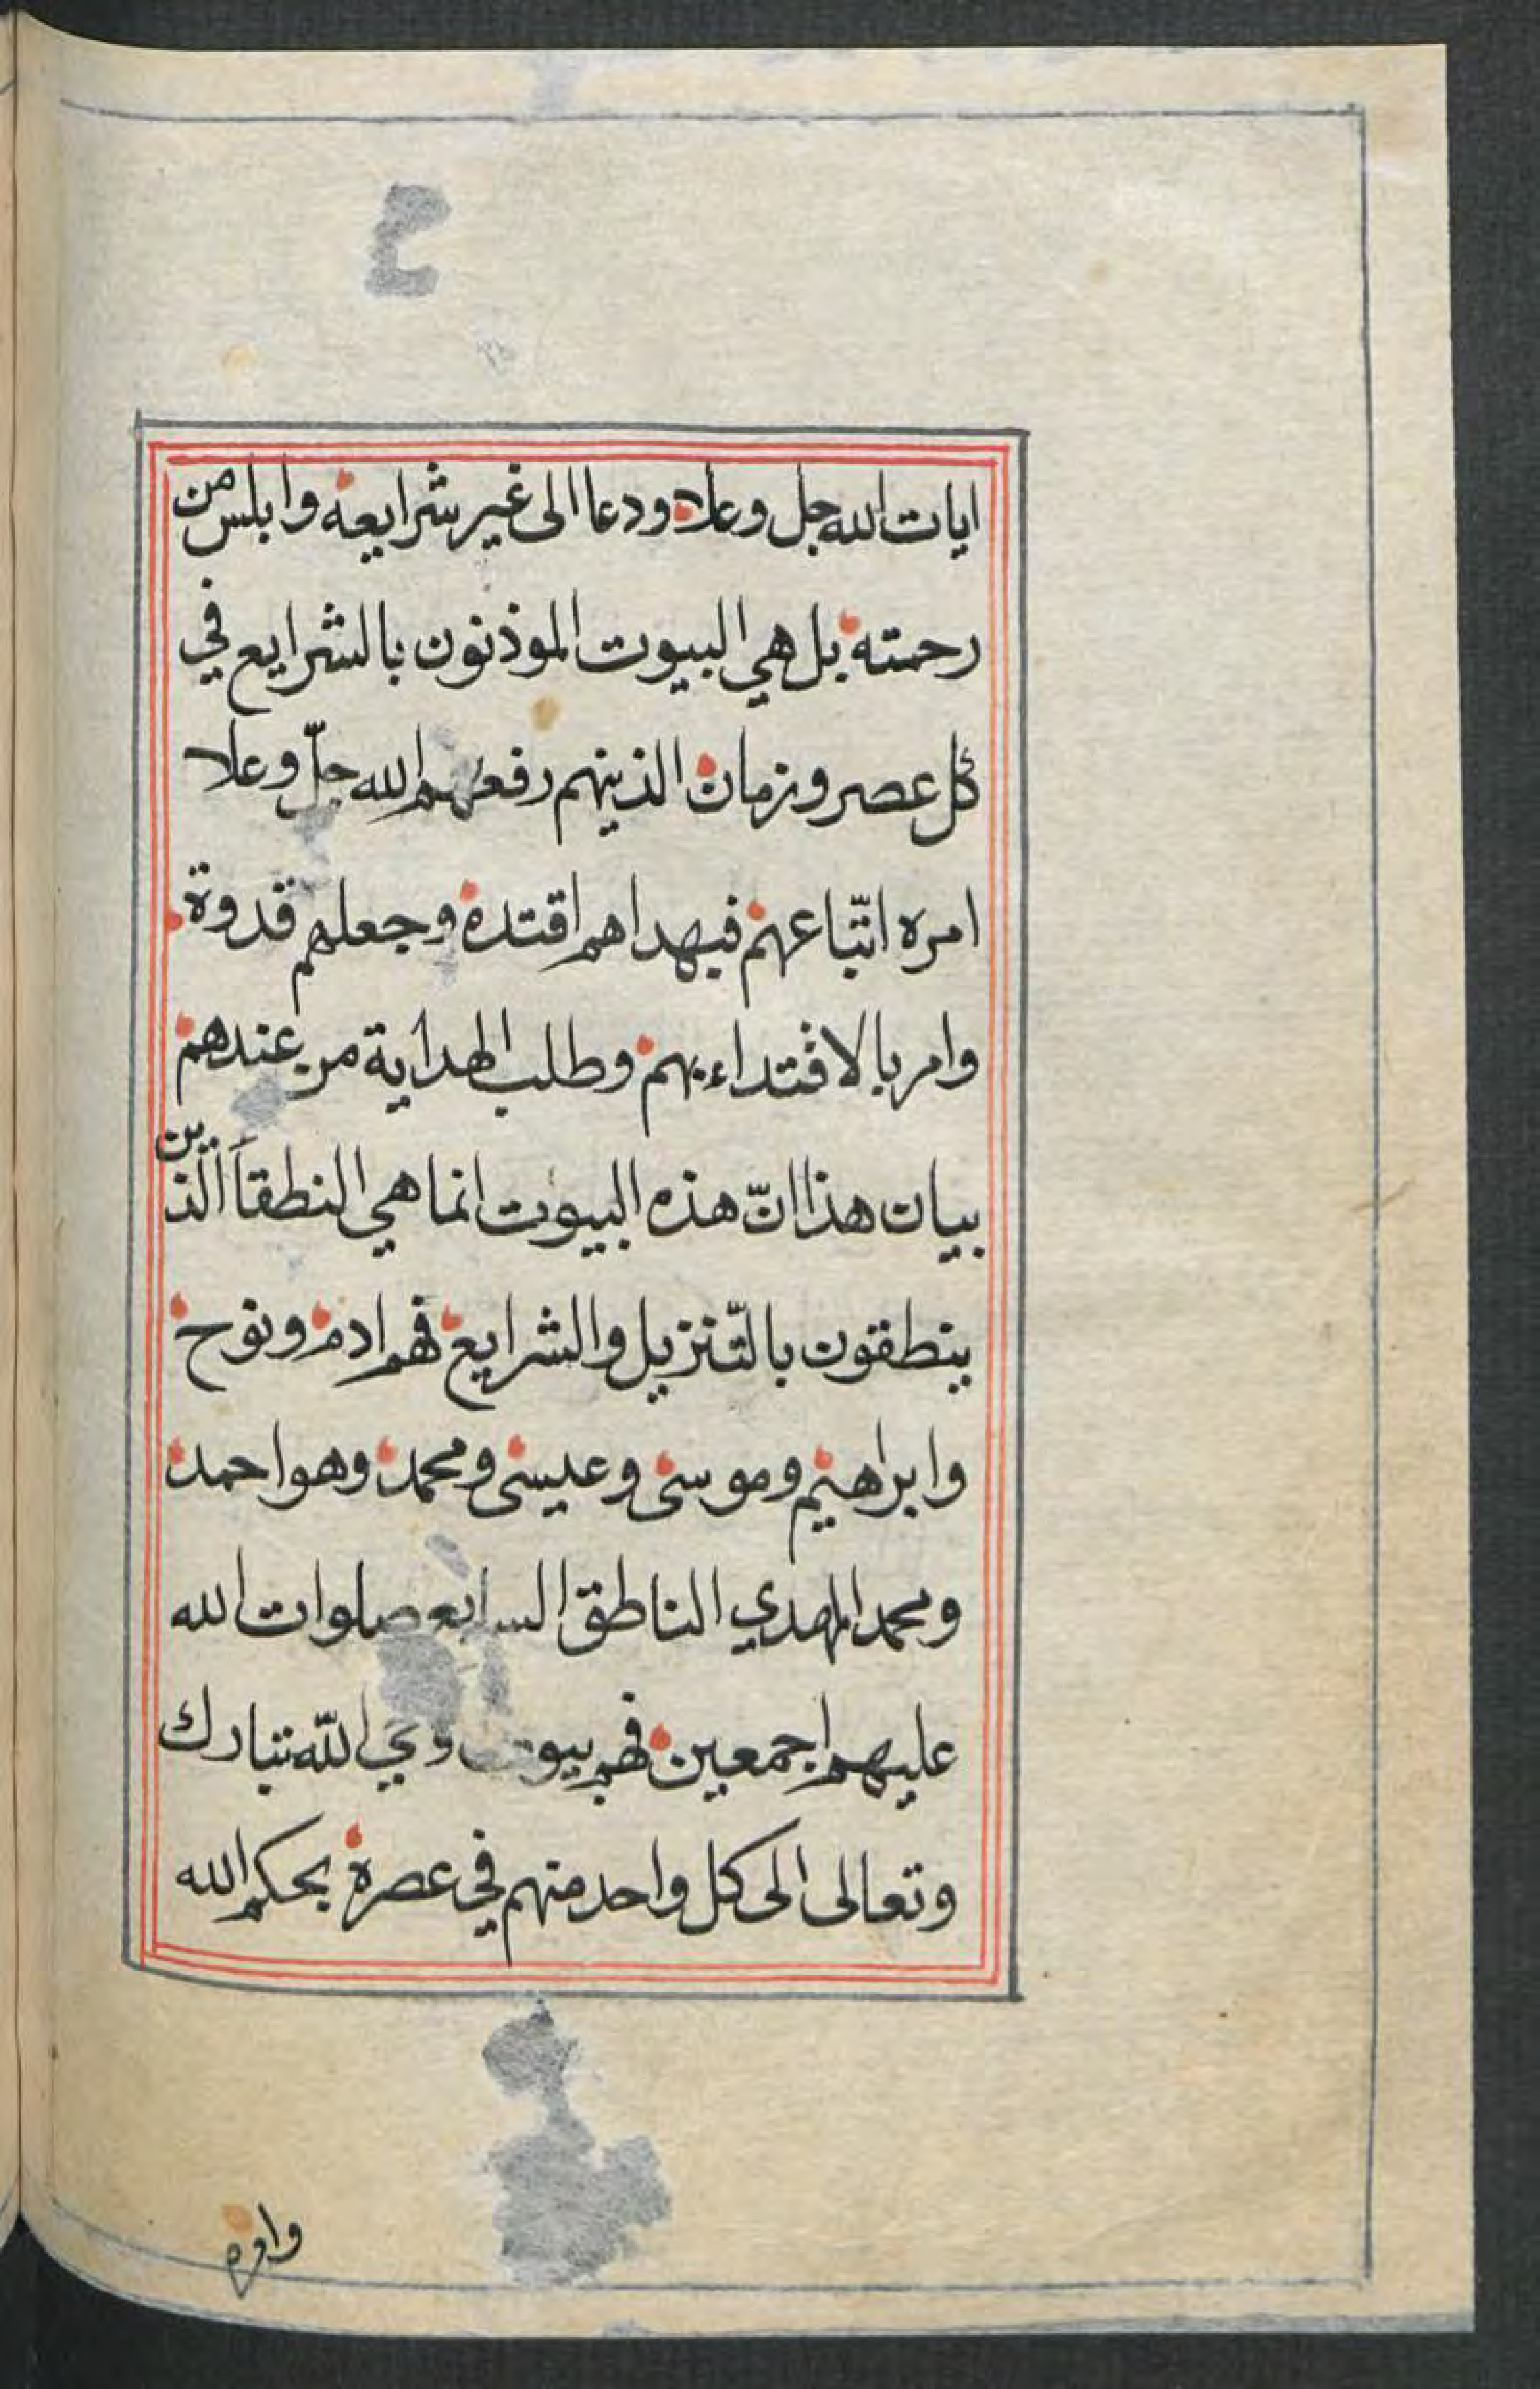 ايات الله جل وعلا ودعا الى غير شرايعه وابلس من
رحمته بل هي البيوت الموذنون بالشرايع في
كل عصر وزمان الذينهم رفعهم الله جلّ وعلا
امره اتّباعهم فبهداهم اقتده وجعلهم قدوة
وامر بالاقتداء بهم وطلب الهداية من عندهم
بيان هذا انّ هذه البيوت انما هي النطقاَ الّذين
ينطقون بالتّنزيل والشرايع فهم ادم ونوح
وابراهيم وموسى وعيسى ومحمد وهو احمد
ومحمد المهدي الناطق السابع صلوات الله
عليهم اجمعين فهم بيوت وحي اللّه تبارك
وتعالى الى كل واحد منهم في عصره بحكم الله
وامره